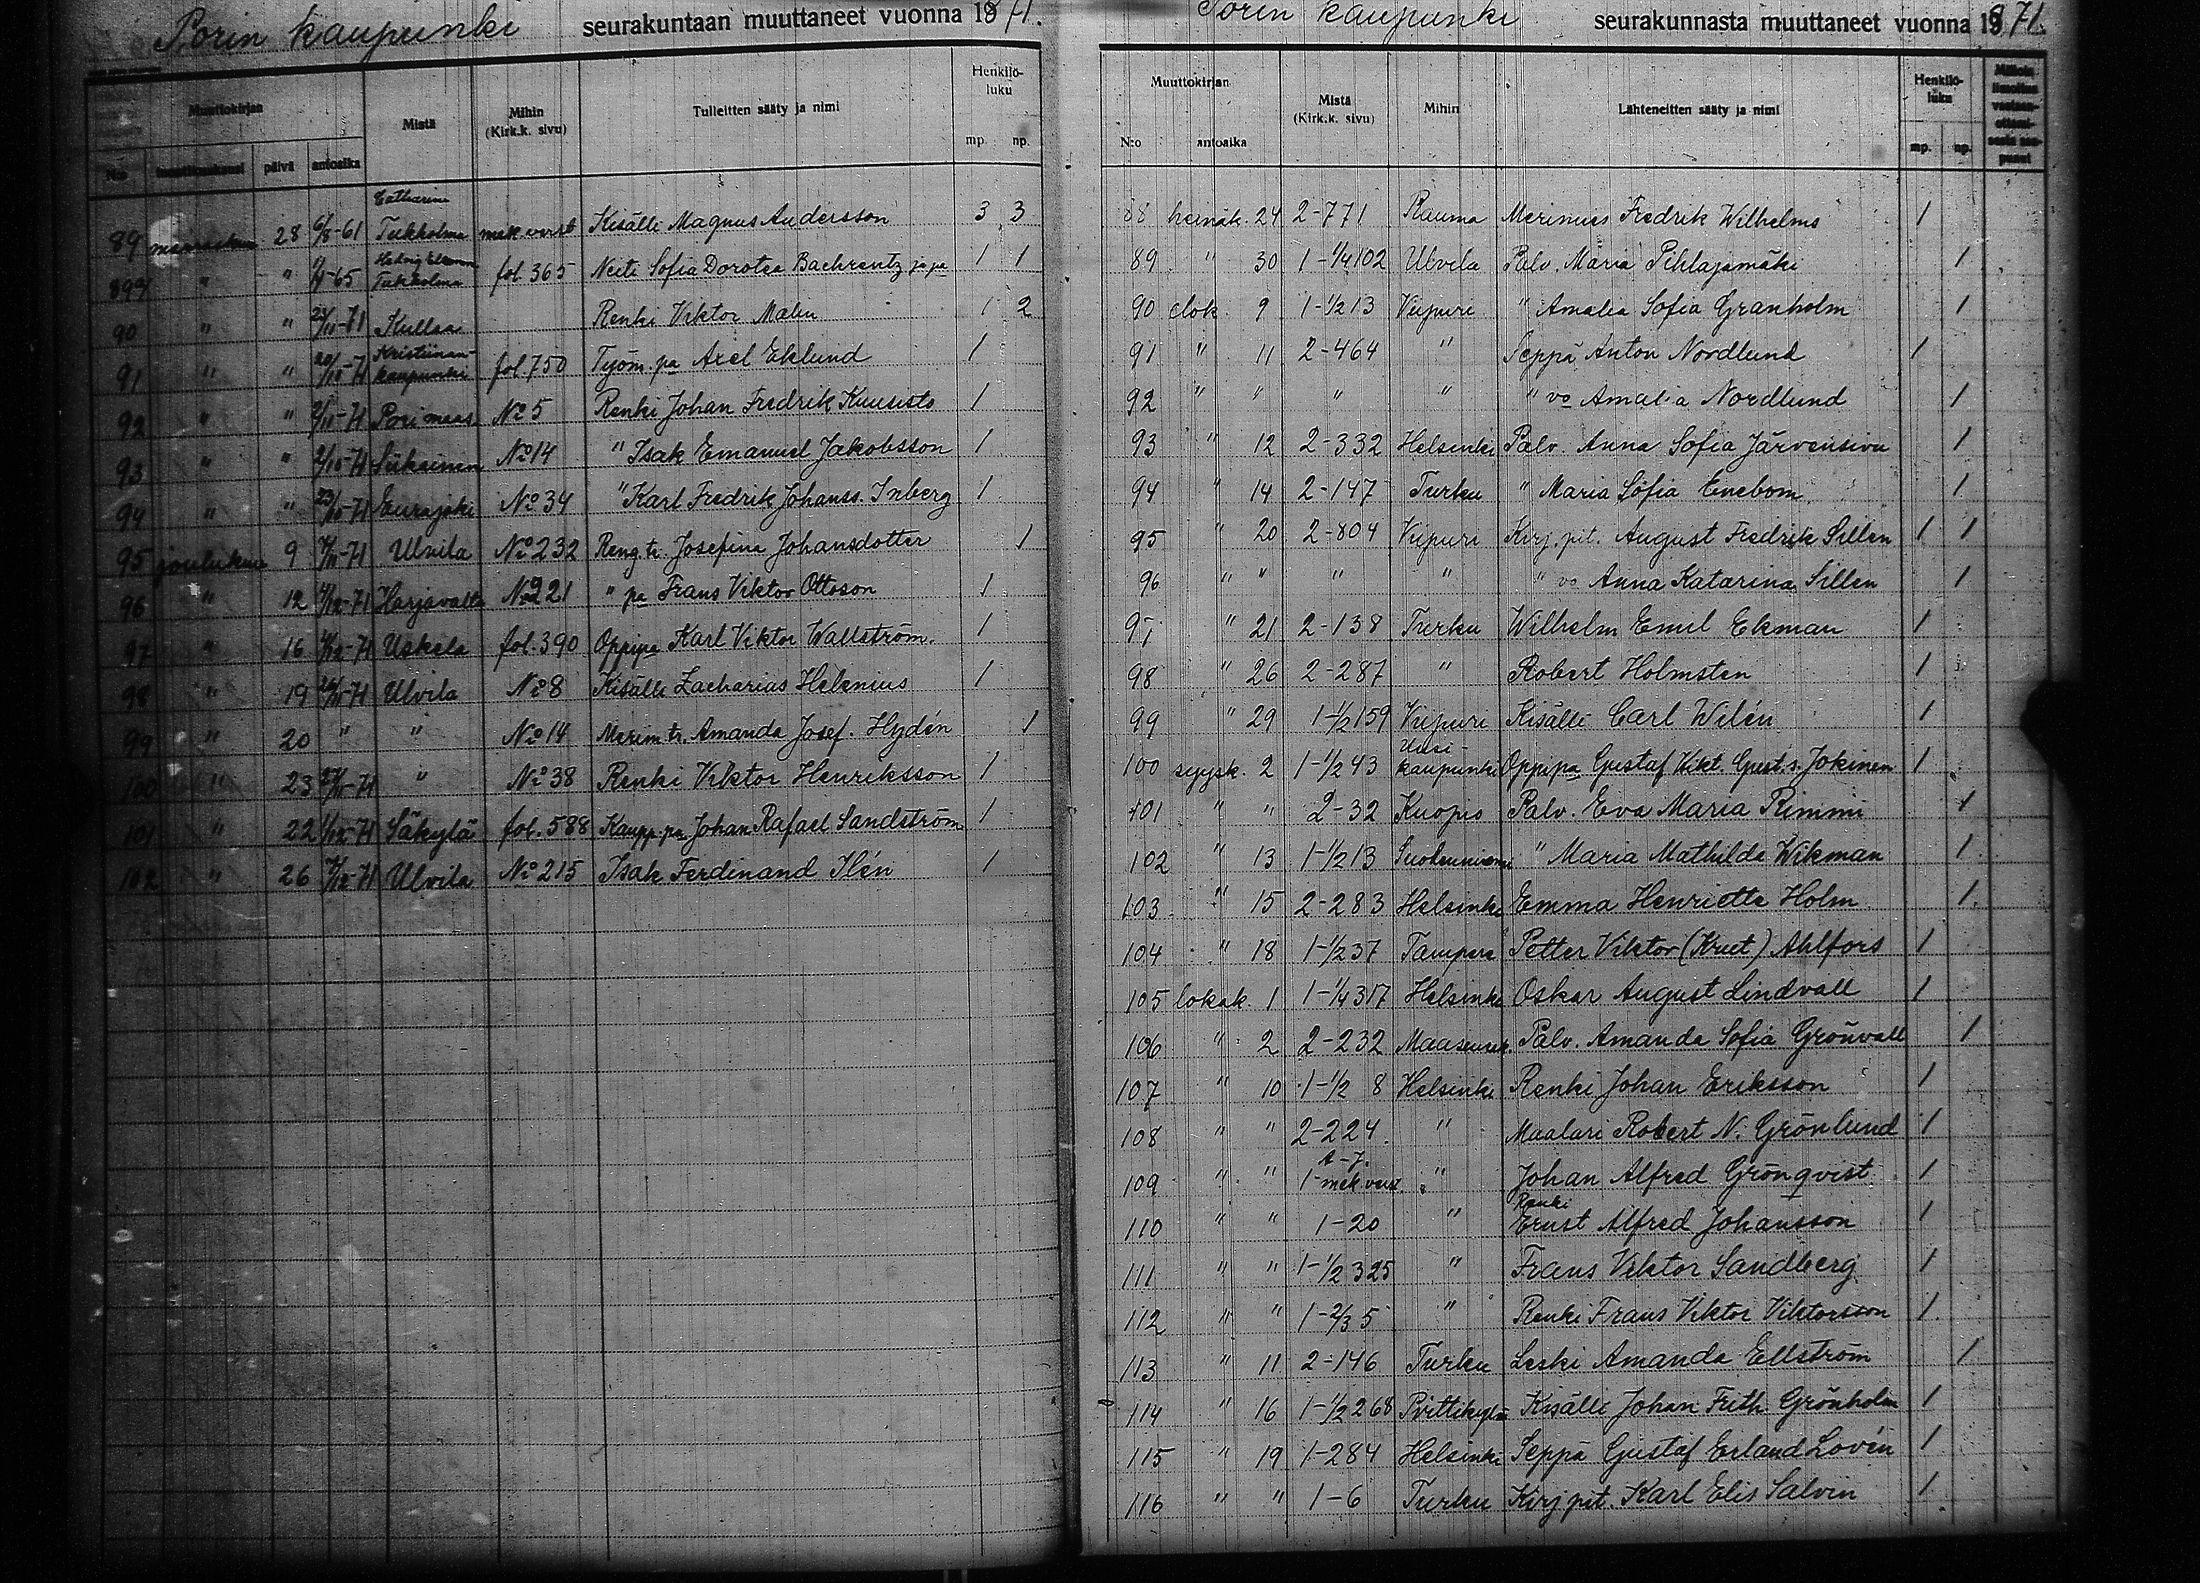 Porin kaupunki seurakuntaan muuttaneet vuonna 1871.
Muuttokirjan Mistä Mihin (Kirk.k. sivu) Tulleitten sääty ja nimi Henkilöluku
N:o päivä antoaika mp. np.
89 marraskuu 28 6/8-61 Catharina Tukholma mek.verst Kisälli Magnus Andersson 3 3
" " -65 Hedvig Eleonora Tukholma fol 365 Neiti Sofia Dorotea Bachrentz ja pa 1 1
90 " " -71 Kullaa Renki Viktor Malin 1 2
91 " " -71 Kristiinankaupunki fol. 750 Työm. pa Axel Eklund 1
92 " " -71 Pori maas. No 5 Renki Johan Fredrik Kuusisto 1
93 " " -71 Siikainen No 14 " Isak Emanuel Jakobsson 1
94 " " -71 Eurajoki No 34 " Karl Fredrik Johanss. Inberg 1
95 joulukuu 9 -71 Ulvila No 232 Reng.tr. Josefina Johansdotter 1
96 " 12 -71 Harjavalta No 221 " pa Frans Viktor Ottoson 1
97 " 16 -71 Uskela fol. 390 Oppipa Karl Viktor Wallström. 1
98 " 19 -71 Ulvila No 8 Kisälli Zacharias Helenius 1
99 " 20 " " No 14 Merim.tr. Amanda Josef. Hydén 1
100 " 23 -71 " No 38 Renki Viktor Henriksson 1
101 " 22 -71 Säkylä fol. 588 Kaupp.pa Johan Rafael Sandström 1
102 " 26 -71 Ulvila No 215 Isak Ferdinand Ilén 1
Porin kaupunki seurakunnasta muuttaneet vuonna 1871.
Muuttokirjan Mistä (Kirk.k. sivu) Mihin Lähteneitten sääty ja nimi Henkilöluku
N:o antoaika mp. np.
88 heinäk. 24 2-771 Rauma Merimies Fredrik Wilhelms 1
89 " 30 1-1/4 102 Ulvila Palv. Maria Pihlajamäki 1
90 elok. 9 1-1/2 13 Viipuri " Amalia Sofia Granholm 1
91 " 11 2-464 " Seppä Anton Nordlund 1
92 " " " " " vo Amalia Nordlund 1
93 " 12 2-332 Helsinki Palv. Anna Sofia Järvensivu 1
94 " 14 2-147 Turku " Maria Sofia Enebom 1
95 " 20 2-804 Viipuri Kirj.pit. August Fredrik Sillen 1 1
96 " " " " " vo Anna Katarina Sillen 1
97 " 21 2-138 Turku Wilhelm Emil Ekman 1
98 " 26 2-287 " Robert Holmsten 1
99 " 29 1-1/2 159 Viipuri Kisälli Carl Wilén 1
100 syysk. 2 1-1/2 43 Uusikaupunki Oppipa Gustaf Vikt. Gust.s. Jokinen 1
101 " " 2-32 Kuopio Palv. Eva Maria Rimmi 1
102 " 13 1-1/2 13 Suodenniemi " Maria Mathilda Wikman 1
103 " 15 2-283 Helsinki Emma Henriette Holm 1
104 " 18 1-1/2 37 Tampere Petter Viktor (Kuet) Ahlfors 1
105 lokak. 1 1-1/4 317 Helsinki Oskar August Lindvall 1
106 " 2 2-232 Maaseurak. Palv. Amanda Sofia Grönvall 1
107 " 10 1-1/2 8 Helsinki Renki Johan Eriksson 1
108 " " 2-224 " Maalari Robert N. Grönlund 1
109 " " 1- mek.verst. " Johan Alfred Grönqvist 1
110 " " 1-20 " Renki Ernst Alfred Johansson 1
111 " " 1-1/2 325 " Frans Viktor Sandberg 1
112 " " 1-2/3 5 " Renki Frans Viktor Viktorsson 1
113 " 11 2-146 Turku Leski Amanda Ellström 1
114 " 16 1-1/2 268 Pirttikylä Kisälli Johan Frith. Grönholm 1
115 " 19 1-284 Helsinki Seppä Gustaf Erland Lovén 1
116 " " 1-6 Turku Kirj.pit. Karl Elis Salvin 1